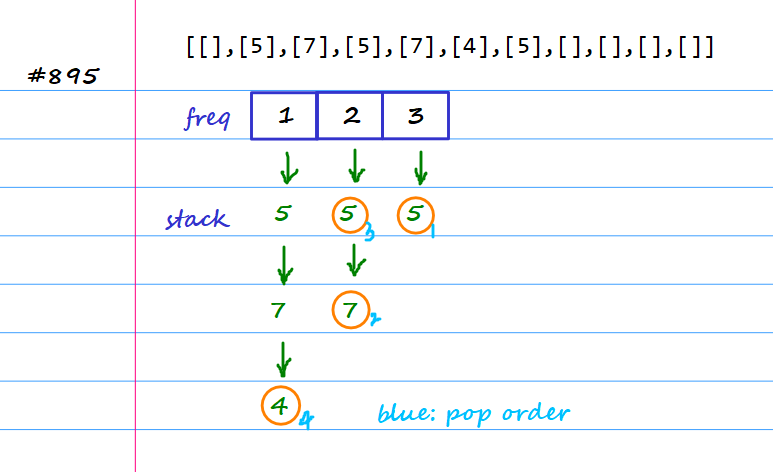 [[],[5],[7],[5],[7],[4],[5],[],[],[],[]]
#895
freq 1 2 3
stack 5 5 3 5 1
7 7 2
4 4
blue: pop order